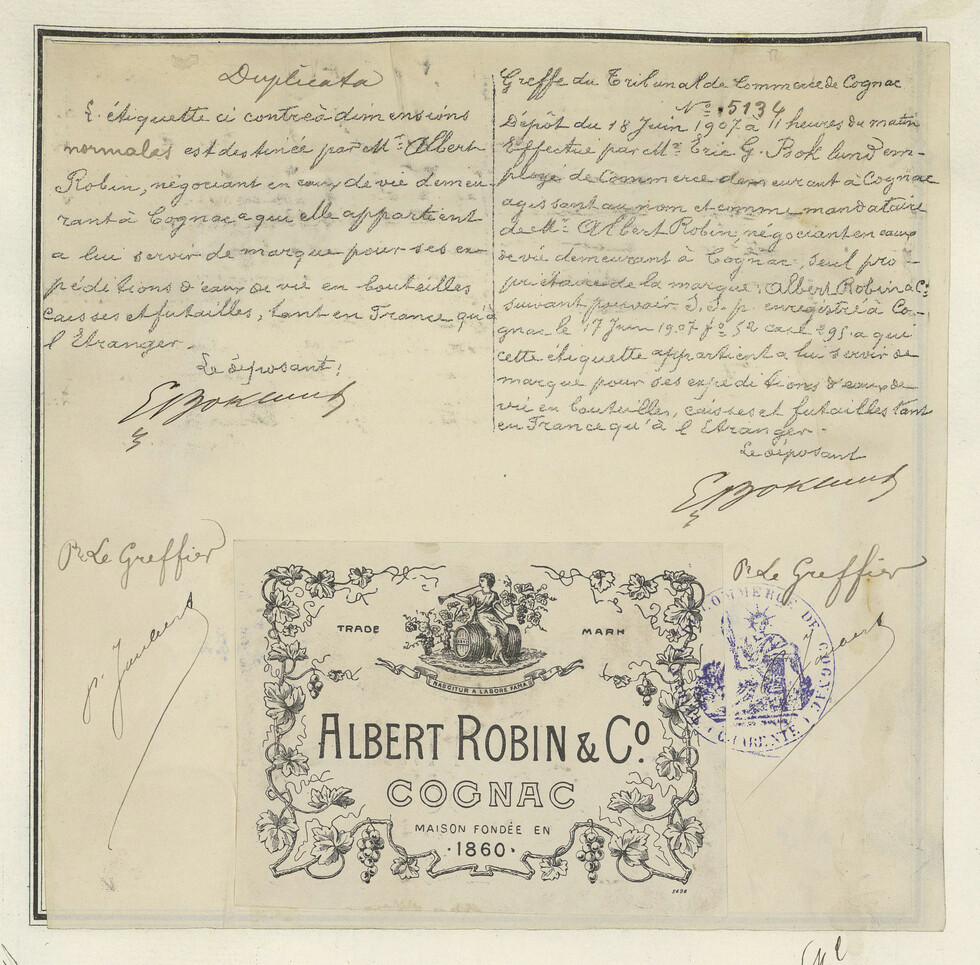 Duplicata
L'étiquette ci contre à dimensions
normales est destinée par Mr. Albert
Robin, négociant en eaux de vie demeu-
rant à Cognac a qui elle appartient
a lui servir de marque pour ses ex-
péditions d'eaux de vie en bouteilles
caisses et futailles, tant en France qu'à
l'Etranger.
Le déposant:
E Boklund
Greffe du Tribunal de Commerce de Cognac
No. 5134
Dépôt du 18 Juin 1907 à 11 heures du matin
Effectué par Mr Eric G. Boklund em-
ployé de Commerce demeurant à Cognac
agissant au nom et comme mandataire
de Mr. Albert Robin, négociant en eaux
de vie demeurant à Cognac, seul pro-
priétaire de la marque, Albert Robin & Co.
suivant pouvoir S. S. p. enregistré à Co-
gnac le 17 Juin 1907 fo 52 case 295 a qui
cette étiquette appartient a lui servir de
marque pour ses expéditions d'eaux de
vie en bouteilles, caisses et futailles tant
en France qu'à l'Etranger.
Le déposant
E Boklund
Pr Le Greffier
Pr Le Greffier
TRADE MARK
NASCITUR A LABORE FAMA
ALBERT ROBIN & Co.
COGNAC
MAISON FONDÉE EN
·1860·
COMMERCE DE COGNAC
(CHARENTE)